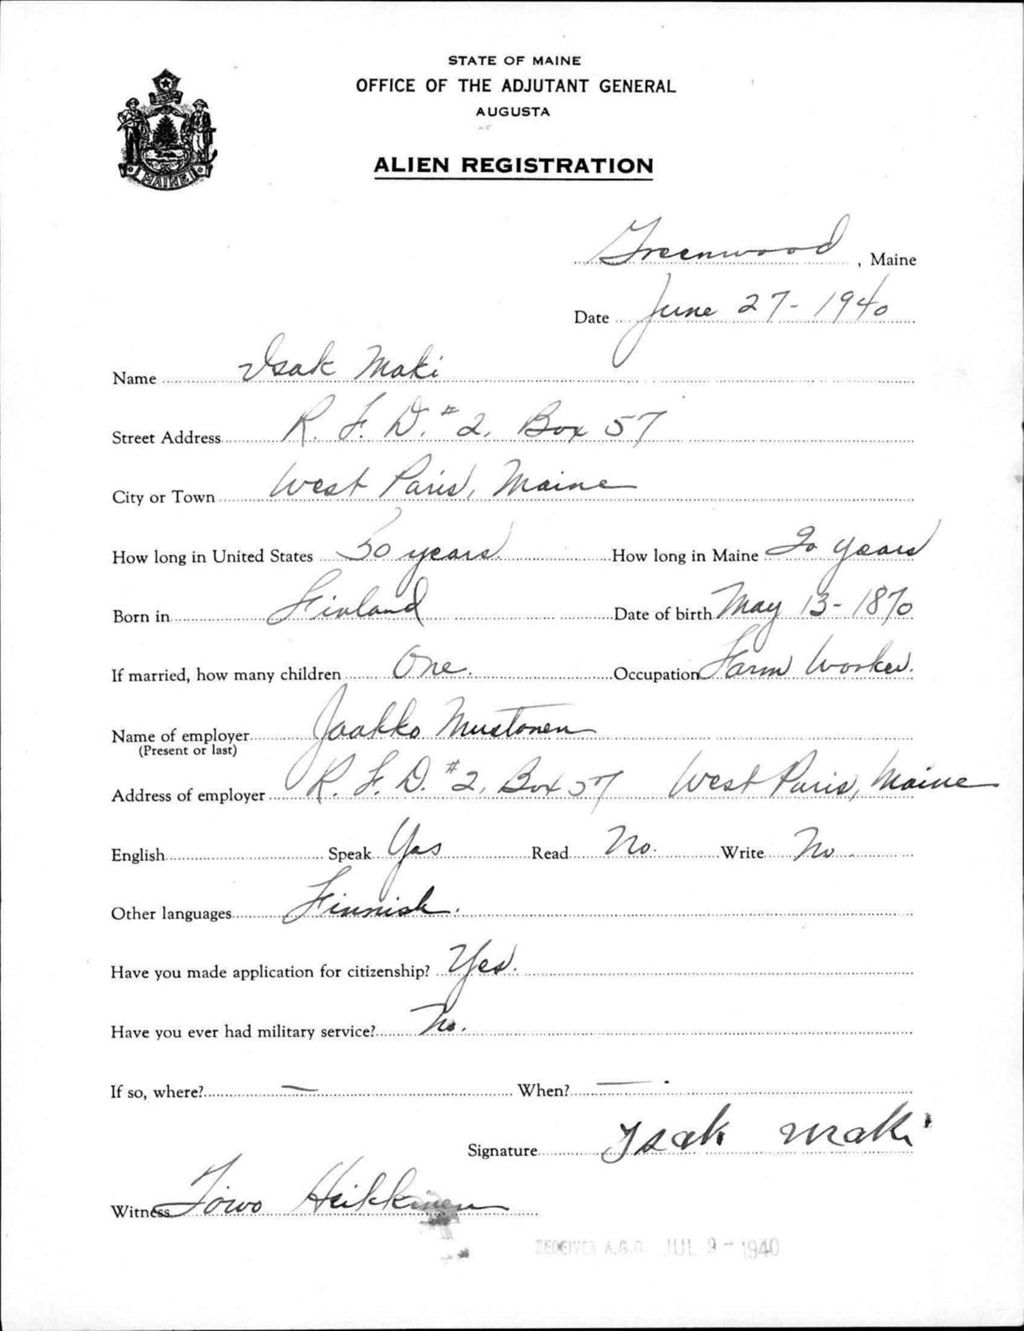 STATE OF MAINE
OFFICE OF THE ADJUTANT GENERAL
AUGUSTA
ALIEN REGISTRATION
MAINE
Greenwood, Maine
Date June 27 - 1940
Name Isak Maki
Street Address R. F. D. #2, Box 57
City or Town West Paris, Maine
How long in United States 30 years How long in Maine 20 years
Born in Finland Date of birth May 13 - 1870
If married, how many children One. Occupation Farm Worker.
Name of employer Jaakko Mustonen
(Present or last)
Address of employer R. F. D. #2, Box 57 West Paris, Maine
English Speak Yes Read No. Write No.
Other languages Finnish.
Have you made application for citizenship? Yes.
Have you ever had military service? No.
If so, where? — When? —.
Signature Isak Maki
Witness Toivo Heikkinen
RECEIVED A.G.O. JUL 9 - 1940